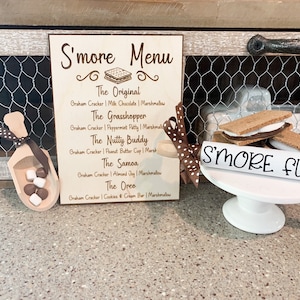 S'more Menu
The Original
Graham Cracker | Milk Chocolate | Marshmallow
The Grasshopper
Graham Cracker | Peppermint Patty | Marshmallow
The Nutty Buddy
Graham Cracker | Peanut Butter Cup | Marsh
The Samoa
Graham Cracker | Almond Joy | Marshmallow
The Oreo
Graham Cracker | Cookies & Cream Bar | Marshmallow
S'MORE FU